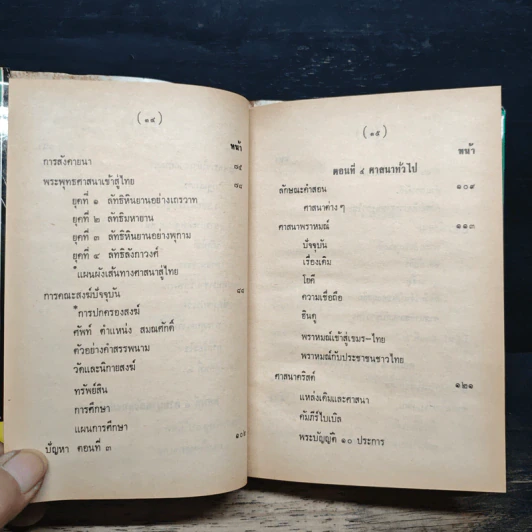 (๑๔)
หน้า
การสังคายนา ๗๕
พระพุทธศาสนาเข้าสู่ไทย ๗๘
ยุคที่ ๑ ลัทธิหินยานอย่างเถรวาท
ยุคที่ ๒ ลัทธิมหายาน
ยุคที่ ๓ ลัทธิหินยานอย่างพุกาม
ยุคที่ ๔ ลัทธิลังกาวงศ์
*แผนผังเส้นทางศาสนาสู่ไทย
การคณะสงฆ์ปัจจุบัน ๘๘
*การปกครองสงฆ์
ศัพท์ ตำแหน่ง สมณศักดิ์
ตัวอย่างคำสรรพนาม
วัดและนิกายสงฆ์
ทรัพย์สิน
การศึกษา
แผนการศึกษา
ปัญหา ตอนที่ ๓
(๑๕)
หน้า
ตอนที่ ๔ ศาสนาทั่วไป
ลักษณะคำสอน ๑๐๙
ศาสนาต่าง ๆ
ศาสนาพราหมณ์ ๑๑๓
ปัจจุบัน
เรื่องเดิม
โยคี
ความเชื่อถือ
ฮินดู
พราหมณ์เข้าสู่เขมร-ไทย
พราหมณ์กับประชาชนชาวไทย
ศาสนาคริสต์ ๑๒๑
แหล่งเดิมและศาสนา
คัมภีร์ไบเบิล
พระบัญญัติ ๑๐ ประการ